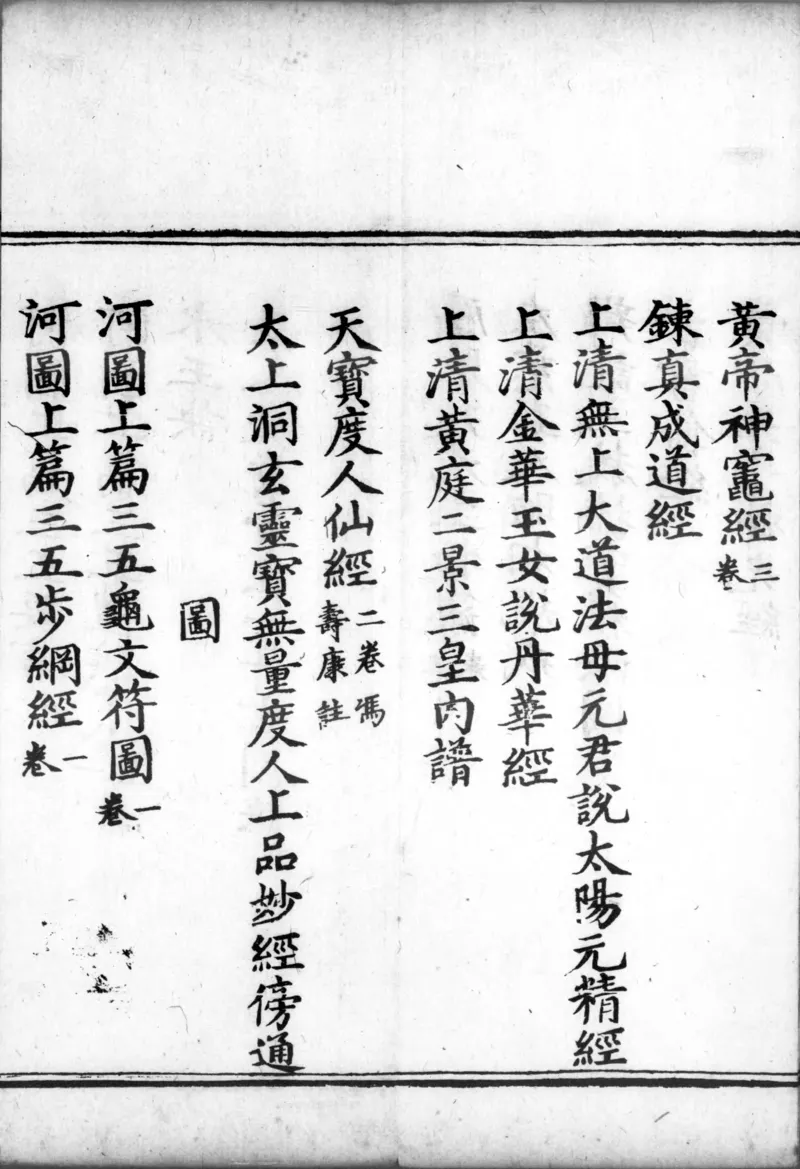 黃帝神竈經三卷
鍊真成道經
上清無上大道法母元君說太陽元精經
上清金華玉女說丹華經
上清黃庭二景三皇內譜
天寶度人仙經二卷馮壽康註
太上洞玄靈寶無量度人上品妙經傍通
圖
河圖上篇三五龜文符圖一卷
河圖上篇三五步綱經一卷